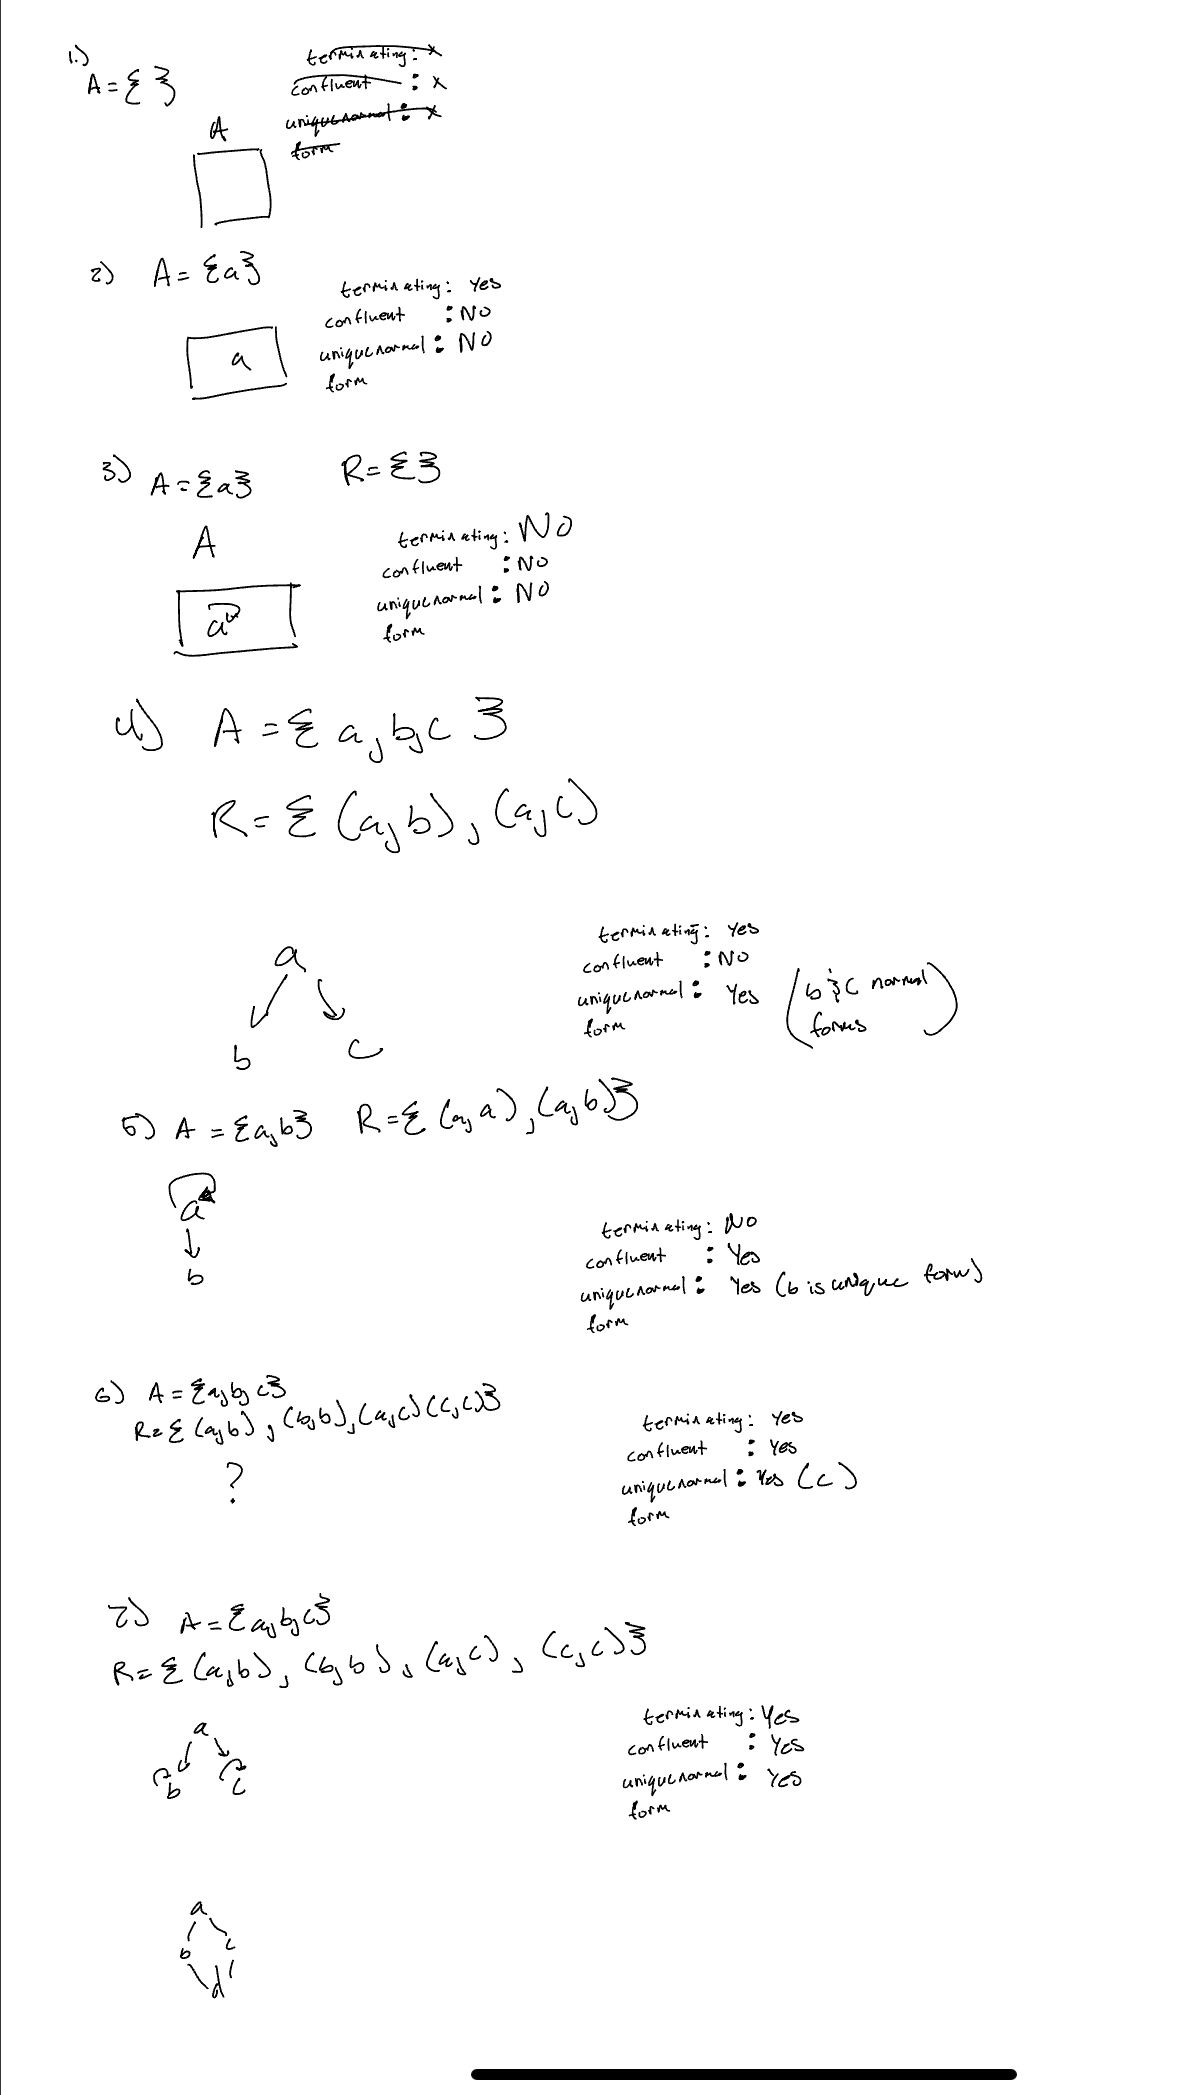 1.)
A = { }
terminating: x
confluent : x
unique normal : x
form
A
2) A = {a}
terminating: Yes
confluent : No
unique normal : No
form
a
3) A = {a} R = { }
A
terminating: No
confluent : No
unique normal : No
form
a
4) A = { a, b, c }
R = { (a, b), (a, c)
terminating: Yes
confluent : No
unique normal : Yes (b & c normal
form forms)
a
b c
5) A = {a, b} R = { (a, a), (a, b)}
a
b
terminating: No
confluent : Yes
unique normal : Yes (b is unique form)
form
6) A = {a, b, c}
R = { (a, b), (b, b), (a, c) (c, c)}
?
terminating: Yes
confluent : Yes
unique normal : Yes (c)
form
7) A = {a, b, c}
R = { (a, b), (b, b), (a, c), (c, c)}
a
b c
terminating: Yes
confluent : Yes
unique normal : Yes
form
a
b c
d